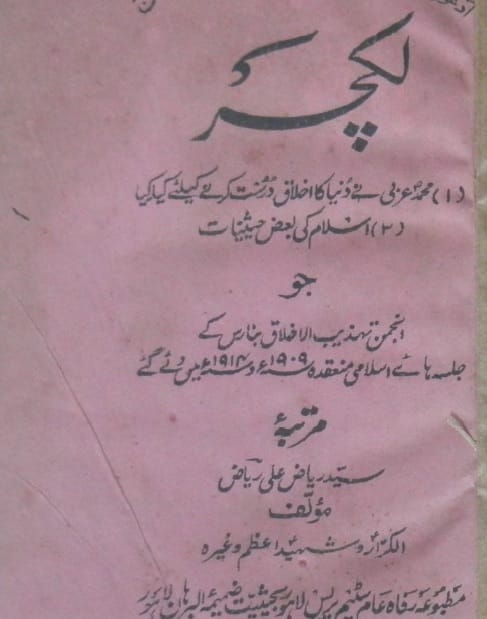 لکچر
(۱) محمدؐ عربی نے دُنیا کا اخلاق دُرست کرنے کیلئے کیا کیا
(۲) اسلام کی بعض حیثیات
جو
انجمن تہذیب الاخلاق بنارس کے
جلسہ ہائے اسلامی منعقدہ سنہ ۱۹۰۹ء و سنہ ۱۹۱۴ء میں دئے گئے
مرتبۂ
سیّد ریاض علی ریاضؔ
مؤلف
الکرار و شہید اعظم وغیرہ
مطبوعہ رفاہ عام سٹیم پریس لاہور بحیثیت ضمیمہ البرہان لاہور